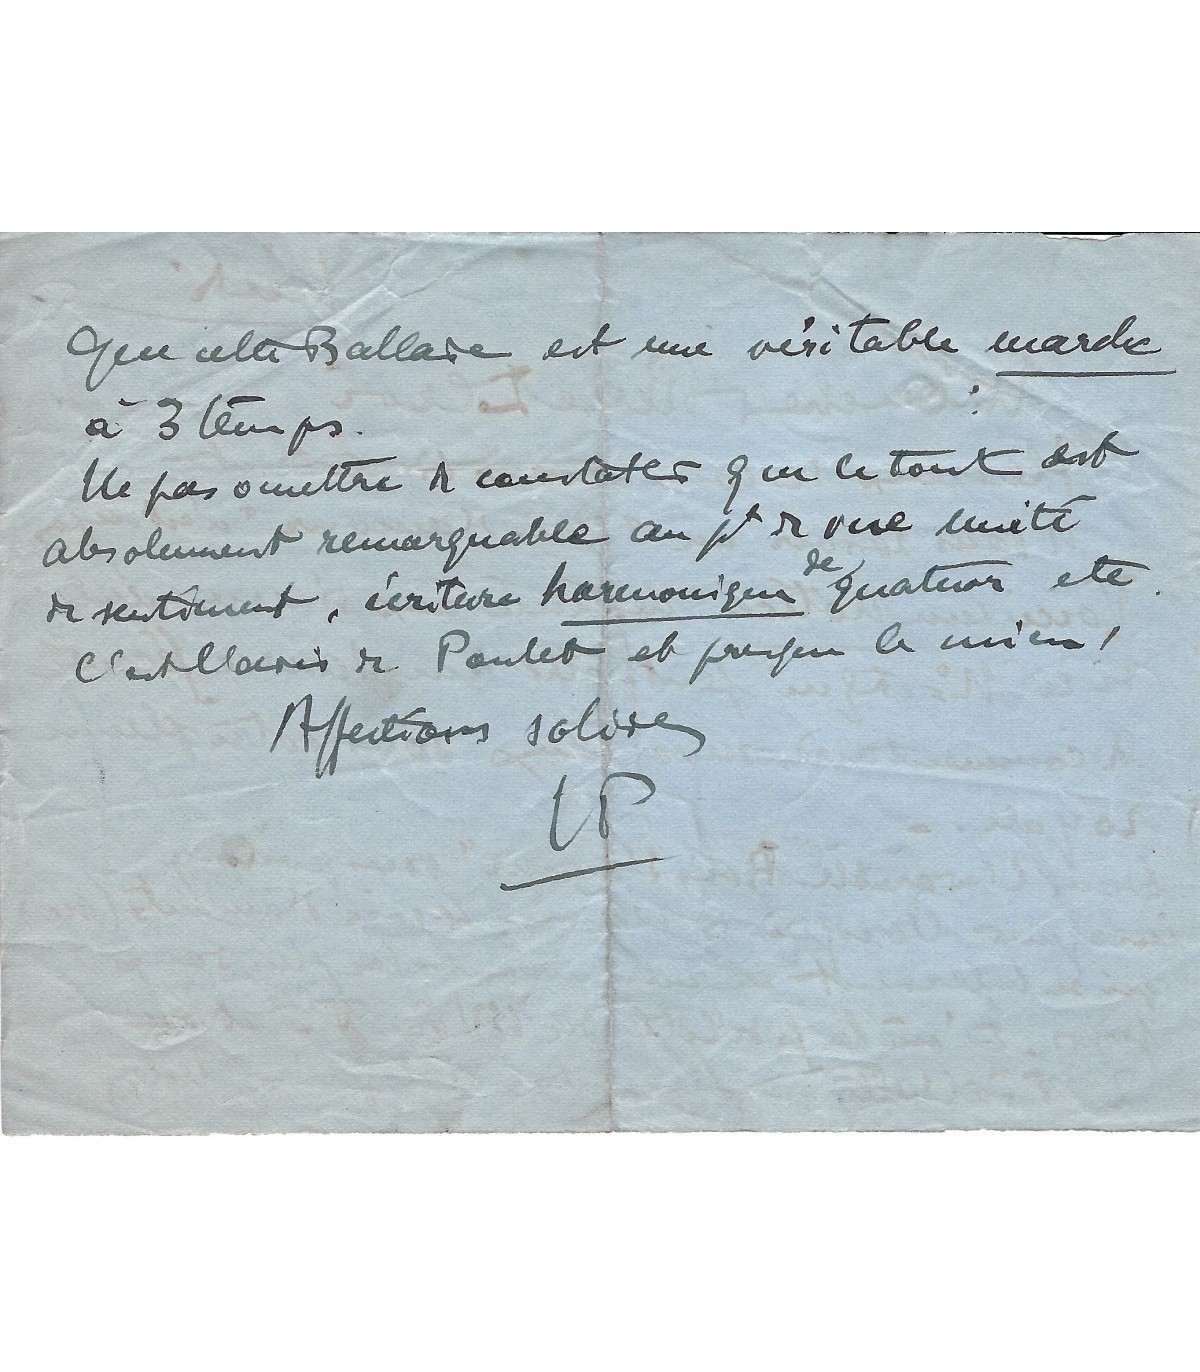 Que cette Ballade est une véritable marche
à 3 temps.
Ne pas omettre de constater que le tout est
absolument remarquable au pt de vue unité
de sentiment, écriture harmonique de quatuor etc.
C'est l'avis de Poulet et presque le mien !
Affections solides